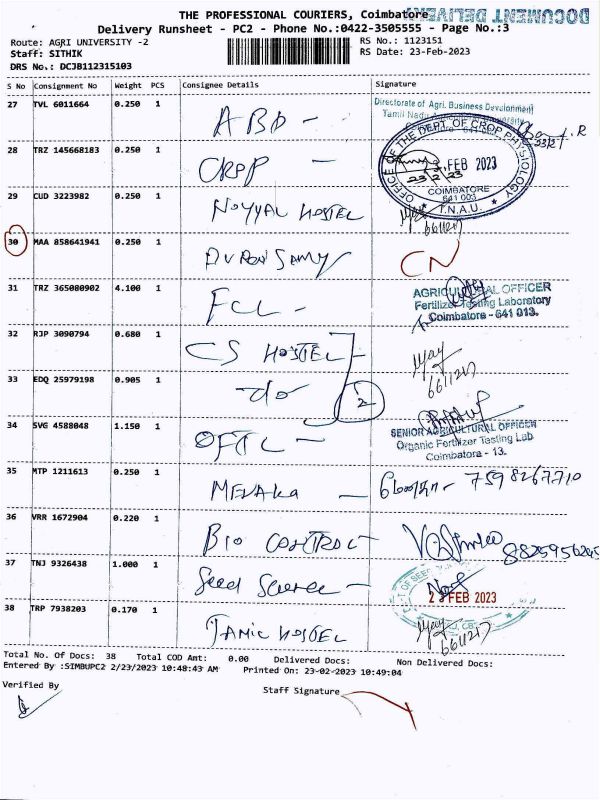 DOCUMENT DELIVE
THE PROFESSIONAL COURIERS, Coimbatore
Delivery Runsheet - PC2 - Phone No.:0422-3505555 - Page No.:3
Route: AGRI UNIVERSITY -2 RS No.: 1123151
Staff: SITHIK RS Date: 23-Feb-2023
DRS No.: DCJB112315103
S No Consignment No Weight PCS Consignee Details Signature
27 TVL 6011664 0.250 1 ABD -
Directorate of Agri. Business Development
Tamil Nadu
28 TRZ 145668183 0.250 1 CROP -
OFFICE OF THE DEPT OF CROP PHYSIOLOGY
FEB 2023
23/2/23
COIMBATORE
641 003
T.N.A.U.
29 CUD 3223982 0.250 1 NOYYAL HOSTEL
6611217
30 MAA 858641941 0.250 1
CN
31 TRZ 365080902 4.100 1 FCL -
AGRICULTURAL OFFICER
Fertilizer Testing Laboratory
Coimbatore - 641 013.
32 RJP 3090794 0.680 1 CS HOSTEL
6611217
33 EDQ 25979198 0.905 1 do 2
34 SVG 4588048 1.150 1 OFTL -
SENIOR AGRICULTURAL OFFICER
Organic Fertilizer Testing Lab
Coimbatore - 13.
35 MTP 1211613 0.250 1 MENAKA - 7598267710
36 VRR 1672904 0.220 1 BIO CONTROL -
37 TNJ 9326438 1.000 1 Seed Science -
23 FEB 2023
38 TRP 7938203 0.170 1 HOSTEL
6611217
Total No. Of Docs: 38 Total COD Amt: 0.00 Delivered Docs: Non Delivered Docs:
Entered By :SIMBUPC2 2/23/2023 10:48:43 AM Printed On: 23-02-2023 10:49:04
Verified By Staff Signature